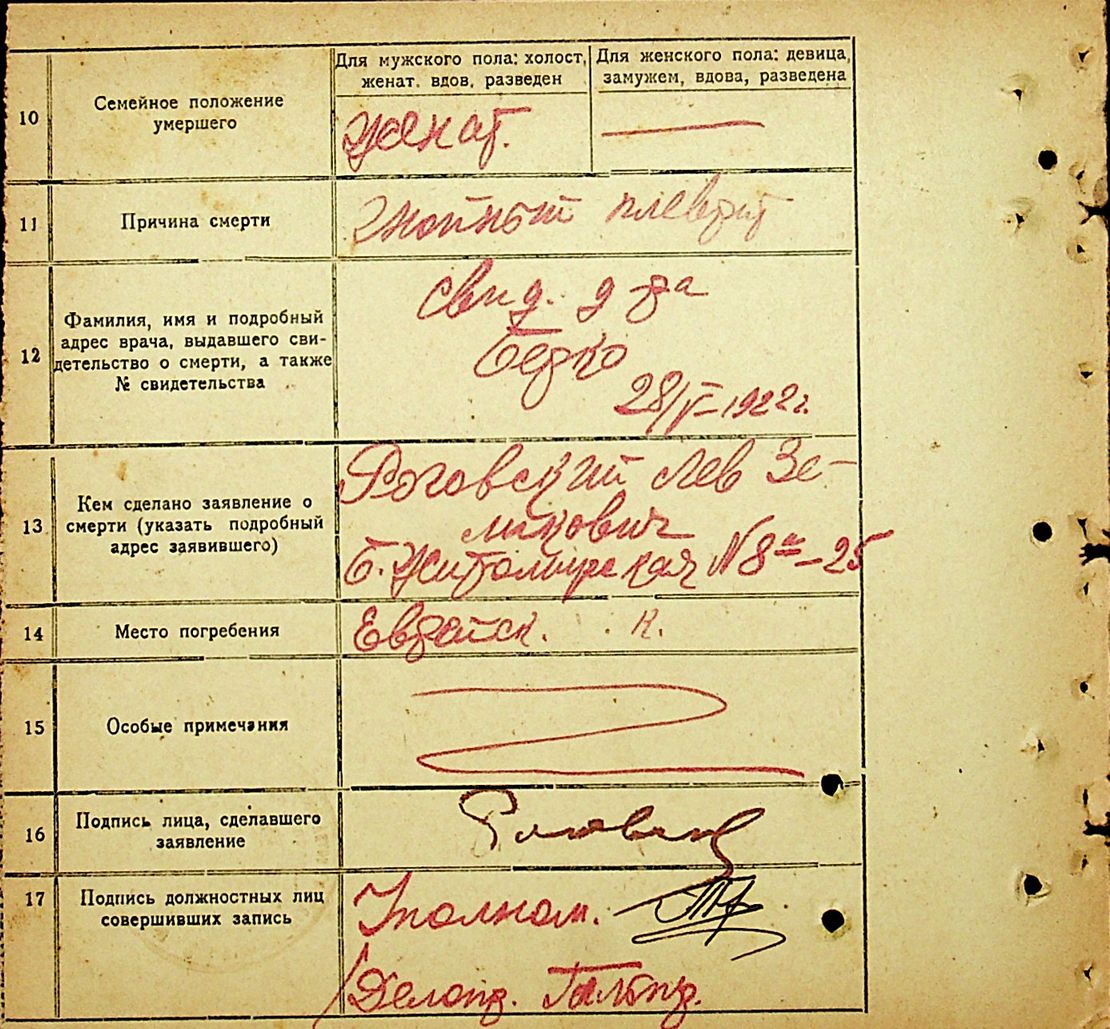 Для мужского пола: холост, женат. вдов, разведен
Для женского пола: девица, замужем, вдова, разведена
10
Семейное положение
умершего
женат.
11
Причина смерти
Гнойный плеврит
12
Фамилия, имя и подробный
адрес врача, выдавшего сви-
детельство о смерти, а также
№ свидетельства
Свид. д-ра
28/V-1922 г.
13
Кем сделано заявление о
смерти (указать подробный
адрес заявившего)
Роговский Лев Зе-
ликович
Б. Житомирская N 8а-25
14
Место погребения
Еврейск. к.
15
Особые примечания
16
Подпись лица, сделавшего
заявление
17
Подпись должностных лиц
совершивших запись
Уполном.
Делопр.